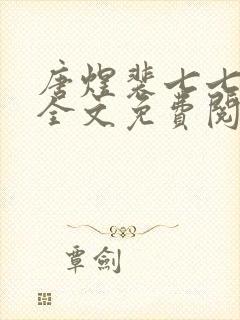 唐煌裴七七
全文免费阅
覃劍